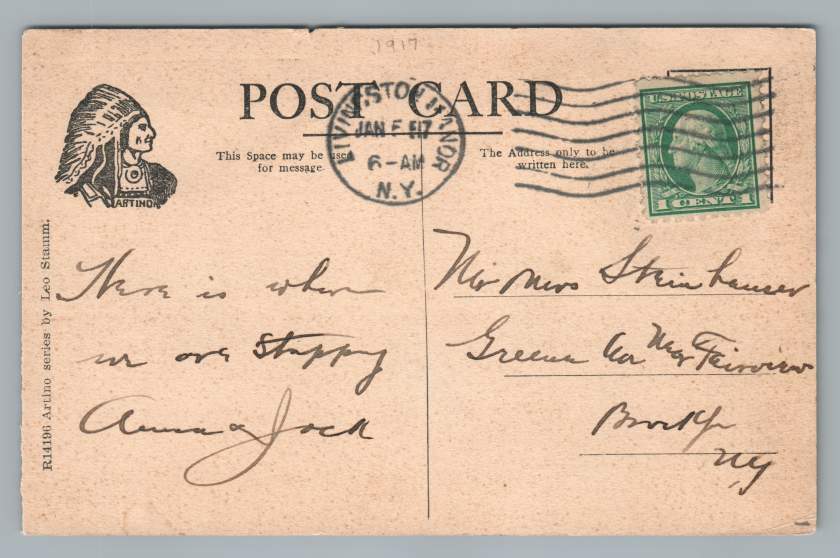 1917
POST CARD
LIVINGSTON MANOR
JAN 5 1917
6-AM
N.Y.
U.S. POSTAGE
1 CENT 1
This Space may be used
for message
The Address only to be
written here.
ARTINO
R14196 Artino series by Leo Stamm.
Here is where
we are stopping
Anna & Jack
Mr Mrs Steinhauser
Greene Av Near Fairview
Brooklyn
NY